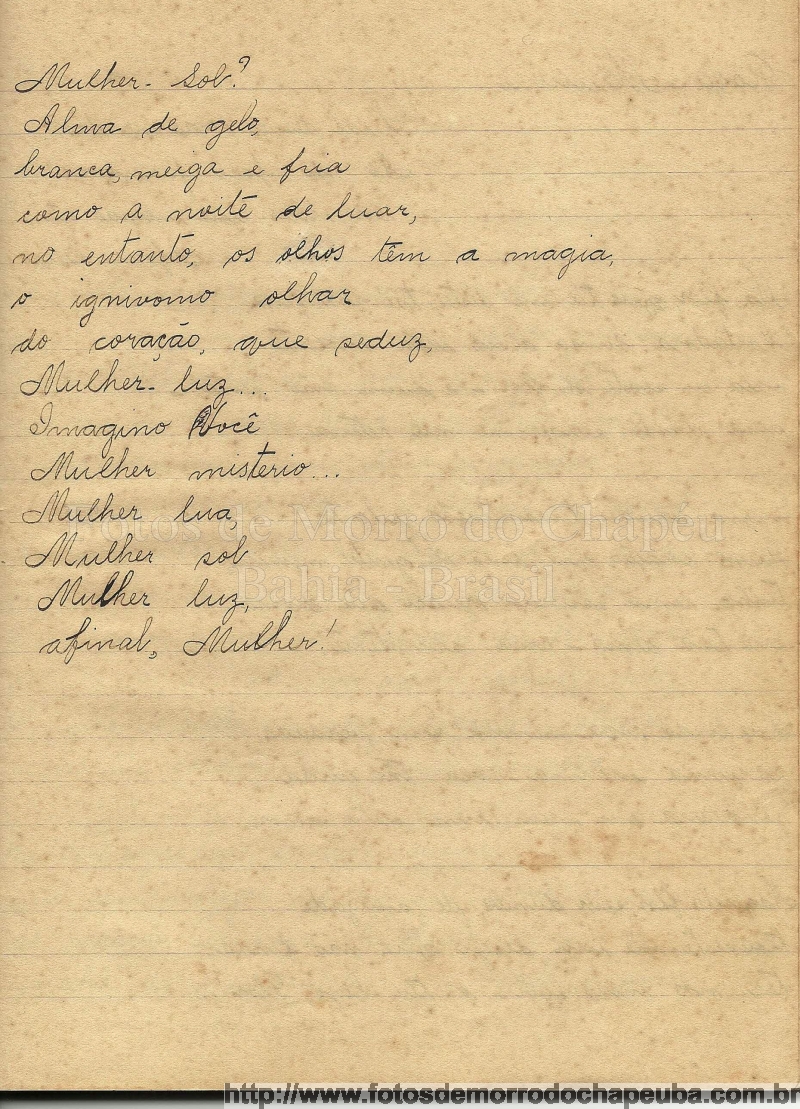 Mulher - Sol?
Alma de gelo,
branca, meiga e fria
como a noite de luar,
no entanto, os olhos têm a magia,
o ignivomo olhar
do coração, que seduz,
Mulher - luz...
Imagino Você
Mulher misterio...
Mulher lua,
Mulher sol
Mulher luz,
afinal, Mulher!
Fotos de Morro do Chapéu
Bahia - Brasil
http://www.fotosdemorrodochapeuba.com.br